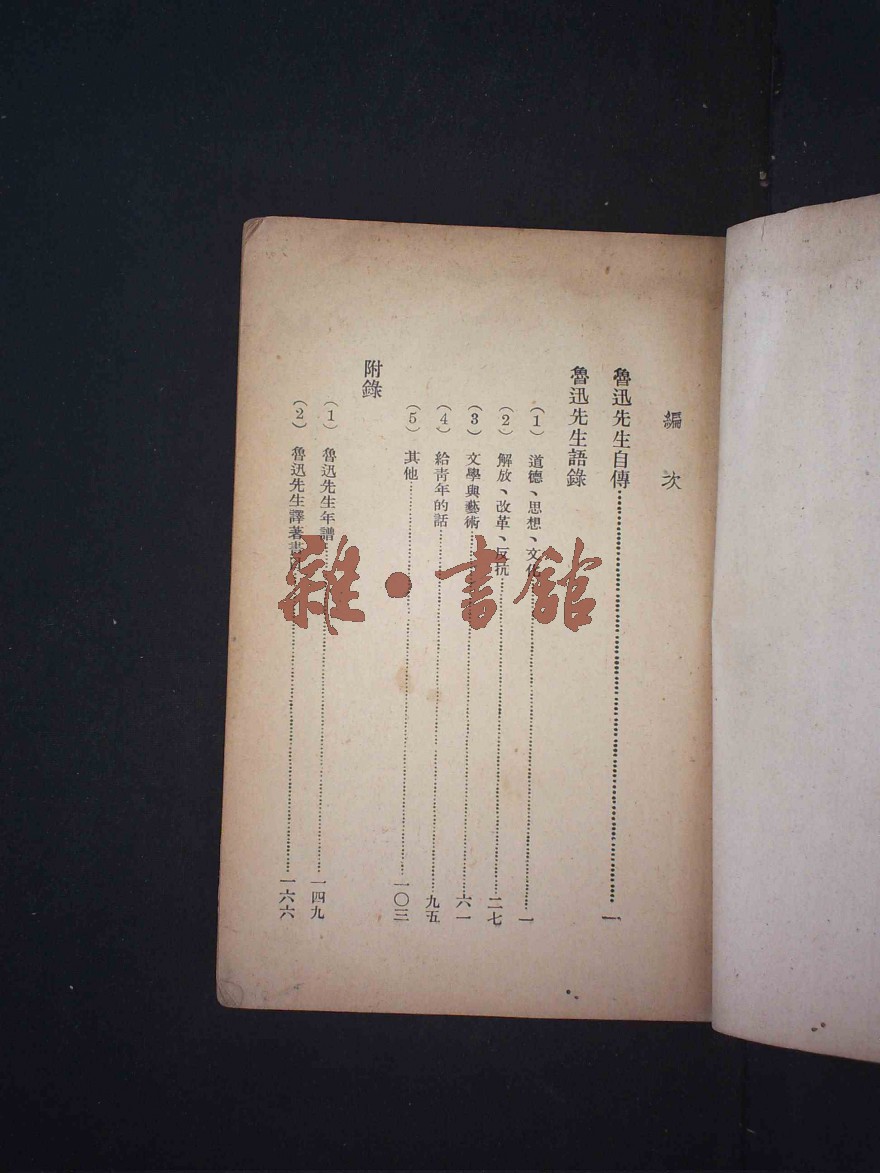 編次
魯迅先生自傳……一
魯迅先生語錄
（1）道德、思想、文化……一
（2）解放、改革、反抗……二七
（3）文學與藝術……六一
（4）給青年的話……九五
（5）其他……一〇三
附錄
（1）魯迅先生年譜……一四九
（2）魯迅先生譯著書……一六六
雜·書館